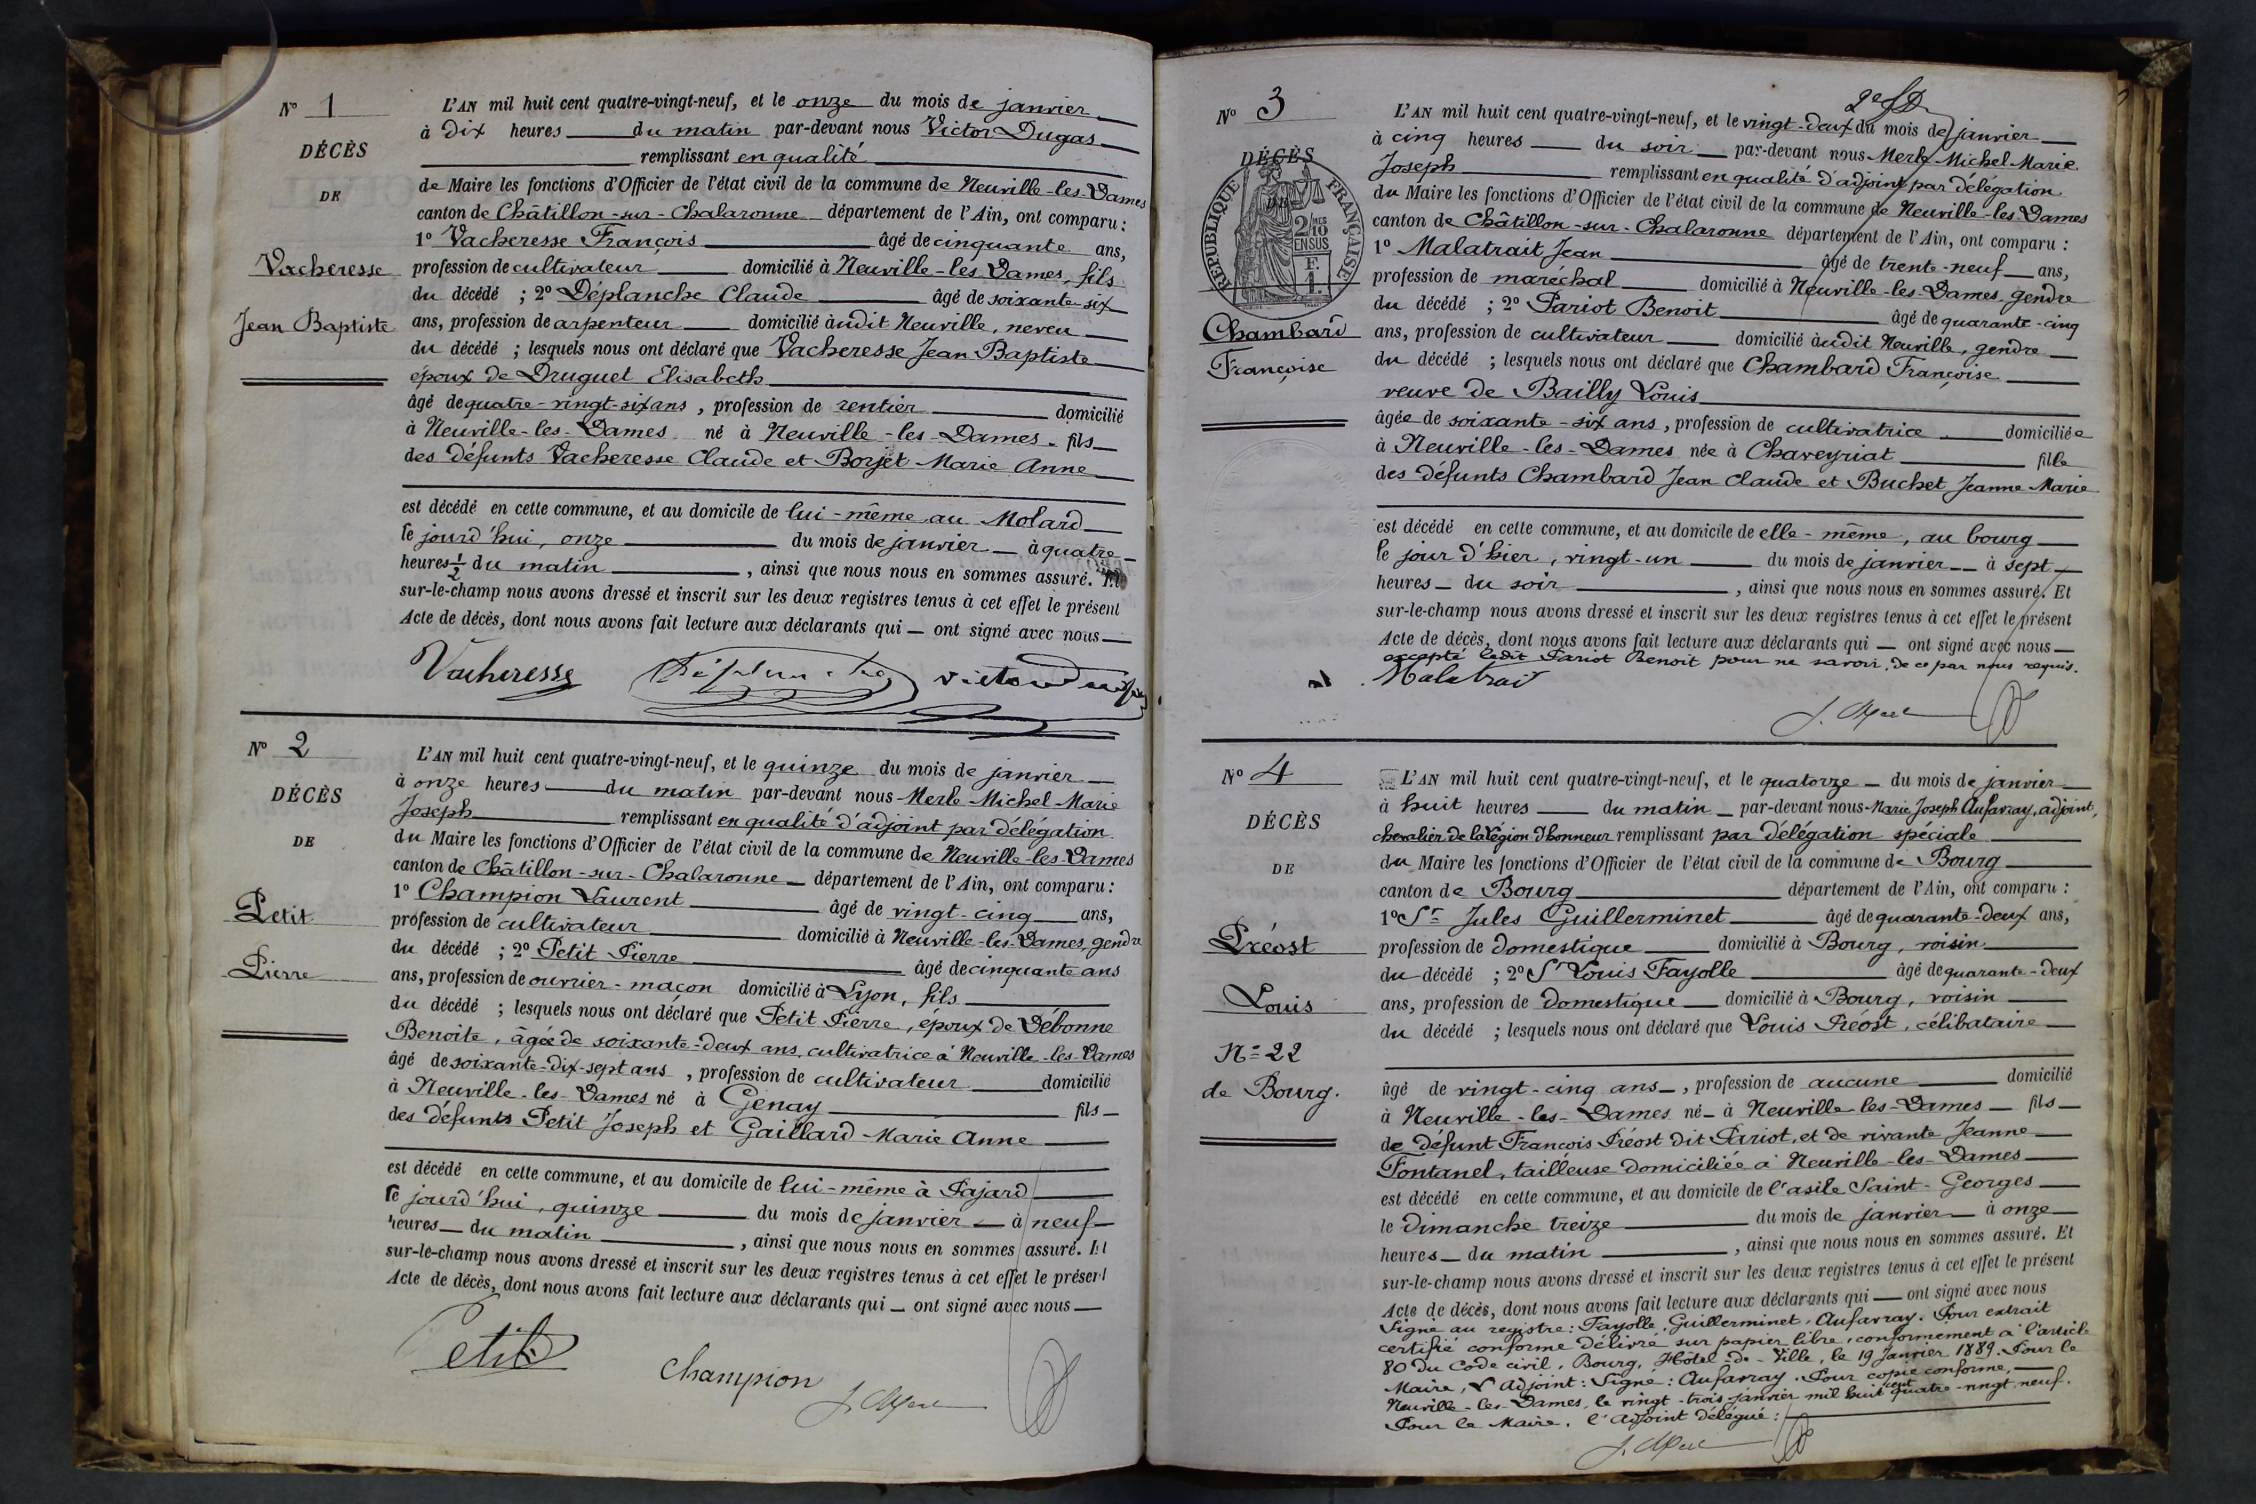 N° 1
DÉCÈS
DE
Vacheresse
Jean Baptiste
L'AN mil huit cent quatre-vingt-neuf, et le onze du mois de janvier
à dix heures du matin par-devant nous Victor Dugas
remplissant en qualité
de Maire les fonctions d'Officier de l'état civil de la commune de Neuville-les-Dames
canton de Châtillon-sur-Chalaronne département de l'Ain, ont comparu :
1° Vacheresse François âgé de cinquante ans,
profession de cultivateur domicilié à Neuville-les Dames, fils
du décédé ; 2° Déplanche Claude âgé de soixante-six
ans, profession de arpenteur domicilié àudit Neuville, neveu
du décédé ; lesquels nous ont déclaré que Vacheresse Jean Baptiste
époux de Druguet Elisabeth
âgé de quatre-vingt-six ans, profession de rentier domicilié
à Neuville-les-Dames né à Neuville-les-Dames fils
des défunts Vacheresse Claude et Borjet Marie Anne
est décédé en cette commune, et au domicile de lui-même au Molard
le jourd'hui, onze du mois de janvier à quatre
heures ½ du matin, ainsi que nous nous en sommes assuré. Et
sur-le-champ nous avons dressé et inscrit sur les deux registres tenus à cet effet le présent
Acte de décès, dont nous avons fait lecture aux déclarants qui ont signé avec nous
Vacheresse Déplanche Victor Dugas
N° 2
DÉCÈS
DE
Petit
Pierre
L'AN mil huit cent quatre-vingt-neuf, et le quinze du mois de janvier
à onze heures du matin par-devant nous Merle Michel Marie
Joseph remplissant en qualité d'adjoint par délégation
du Maire les fonctions d'Officier de l'état civil de la commune de Neuville-les-Dames
canton de Châtillon-sur-Chalaronne département de l'Ain, ont comparu :
1° Champion Laurent âgé de vingt-cinq ans,
profession de cultivateur domicilié à Neuville-les-Dames, gendre
du décédé ; 2° Petit Pierre âgé de cinquante ans
ans, profession de ouvrier-maçon domicilié à Lyon, fils
du décédé ; lesquels nous ont déclaré que Petit Pierre, époux de Débonne
Benoite, âgée de soixante-deux ans, cultivatrice à Neuville-les-Dames
âgé de soixante-dix-sept ans, profession de cultivateur domicilié
à Neuville-les-Dames né à Genay fils
des défunts Petit Joseph et Gaillard Marie Anne
est décédé en cette commune, et au domicile de lui-même à Pajard
le jourd'hui, quinze du mois de janvier à neuf
heures du matin, ainsi que nous nous en sommes assuré. Et
sur-le-champ nous avons dressé et inscrit sur les deux registres tenus à cet effet le présent
Acte de décès, dont nous avons fait lecture aux déclarants qui ont signé avec nous
Petit
Champion
J. Merle
N° 3
DÉCÈS
DE
RÉPUBLIQUE FRANÇAISE
2/10 EN SUS
Chambard
Françoise
L'AN mil huit cent quatre-vingt-neuf, et le vingt-deux du mois de janvier
à cinq heures du soir par-devant nous Merle Michel Marie
Joseph remplissant en qualité d'adjoint par délégation
du Maire les fonctions d'Officier de l'état civil de la commune de Neuville-les-Dames
canton de Châtillon-sur-Chalaronne département de l'Ain, ont comparu :
1° Malatrait Jean âgé de trente-neuf ans,
profession de maréchal domicilié à Neuville-les-Dames, gendre
du décédé ; 2° Pariot Benoit âgé de quarante-cinq
ans, profession de cultivateur domicilié àudit Neuville, gendre
du décédé ; lesquels nous ont déclaré que Chambard Françoise
veuve de Bailly Louis
âgée de soixante-six ans, profession de cultivatrice domiciliée
à Neuville-les-Dames née à Chaveyriat fille
des défunts Chambard Jean Claude et Buchet Jeanne Marie
est décédé en cette commune, et au domicile de elle-même, au bourg
le jour d'hier, vingt-un du mois de janvier à sept
heures du soir, ainsi que nous nous en sommes assuré. Et
sur-le-champ nous avons dressé et inscrit sur les deux registres tenus à cet effet le présent
Acte de décès, dont nous avons fait lecture aux déclarants qui ont signé avec nous
excepté ledit Pariot Benoit pour ne savoir, de ce par nous requis.
Malatrait
J. Merle
N° 4
DÉCÈS
DE
Préost
Louis
N° 22
de Bourg.
L'AN mil huit cent quatre-vingt-neuf, et le quatorze du mois de janvier
à huit heures du matin par-devant nous Marie Joseph Aufavray, adjoint,
chevalier de la légion d'honneur remplissant par délégation spéciale
du Maire les fonctions d'Officier de l'état civil de la commune de Bourg
canton de Bourg département de l'Ain, ont comparu :
1° Sr Jules Guillerminet âgé de quarante-deux ans,
profession de domestique domicilié à Bourg, voisin
du décédé ; 2° Sr Louis Fayolle âgé de quarante-deux
ans, profession de domestique domicilié à Bourg, voisin
du décédé ; lesquels nous ont déclaré que Louis Préost, célibataire
âgé de vingt-cinq ans, profession de aucune domicilié
à Neuville-les-Dames né à Neuville-les-Dames fils
de défunt François Préost dit Pariot, et de vivante Jeanne
Fontanel, tailleuse domiciliée à Neuville-les-Dames
est décédé en cette commune, et au domicile de l'asile Saint-Georges
le dimanche treize du mois de janvier à onze
heures du matin, ainsi que nous nous en sommes assuré. Et
sur-le-champ nous avons dressé et inscrit sur les deux registres tenus à cet effet le présent
Acte de décès, dont nous avons fait lecture aux déclarants qui ont signé avec nous
Signé au registre : Fayolle, Guillerminet, Aufavray. Pour extrait
certifié conforme délivré sur papier libre, conformement à l'article
80 du Code civil, Bourg, Hôtel-de-Ville, le 19 Janvier 1889. Pour le
Maire, L'adjoint : Signé : Aufavray. Pour copie conforme,
Neuville-les-Dames, le vingt-trois janvier mil huit cent quatre-vingt neuf.
Pour le Maire, l'adjoint délégué :
J. Merle